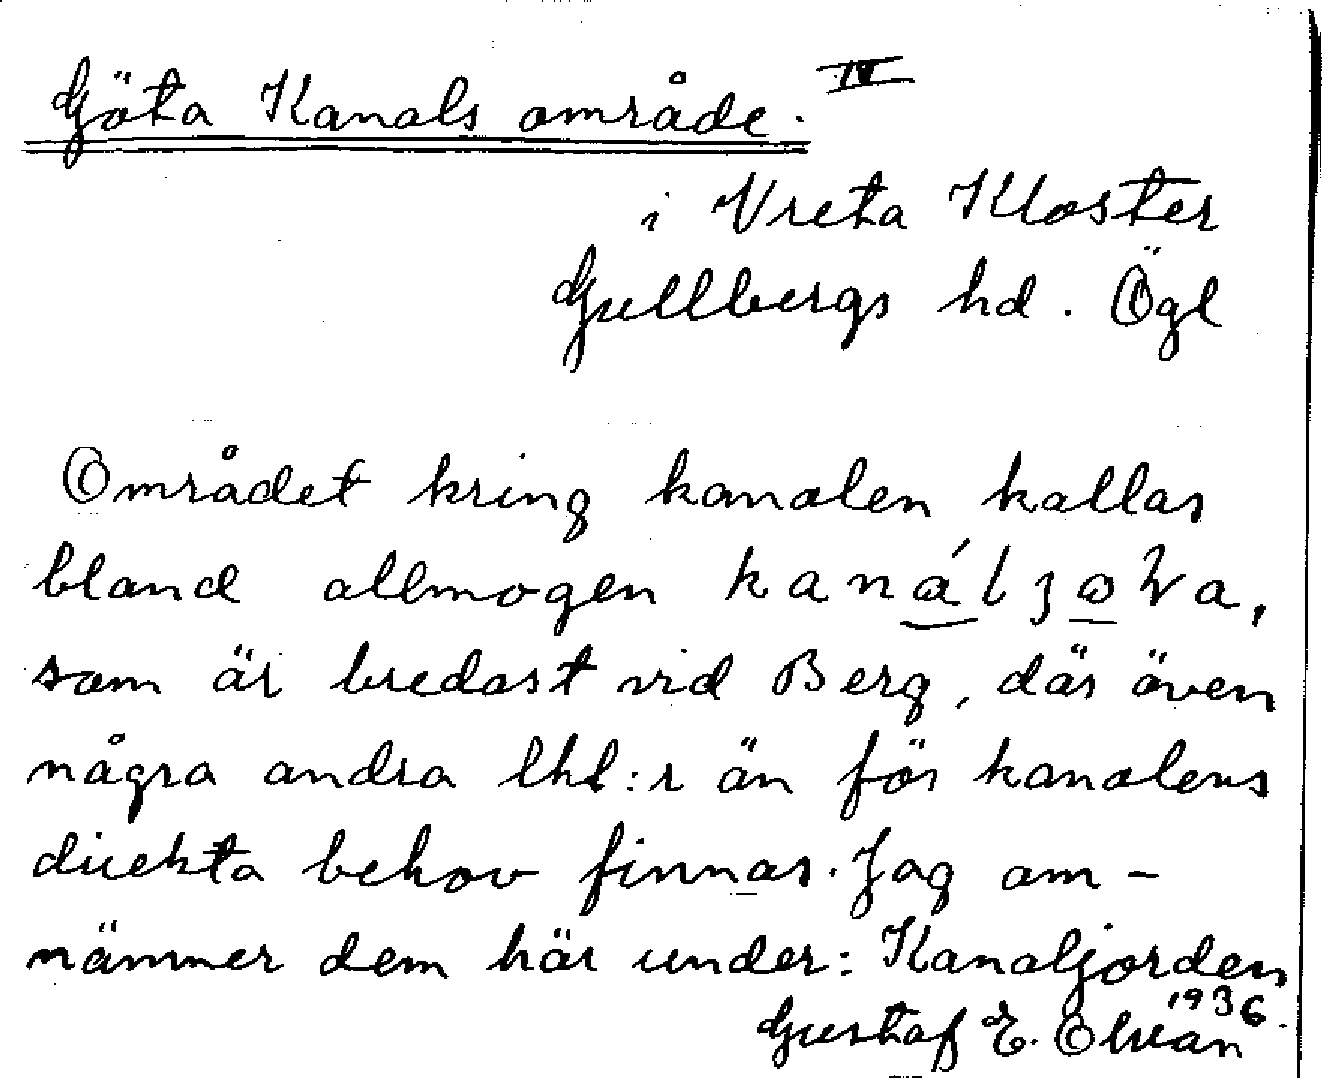 Göta Kanals område. IV
i Vreta Kloster
Gullbergs hd. Ögl
Området kring kanalen kallas
bland allmogen
som är bredast vid Berg, där även
några andra lhl:r än för kanalens
direkta behov finnas. Jag om-
nämner dem här under: Kanaljorden
1936.
Gustaf E.